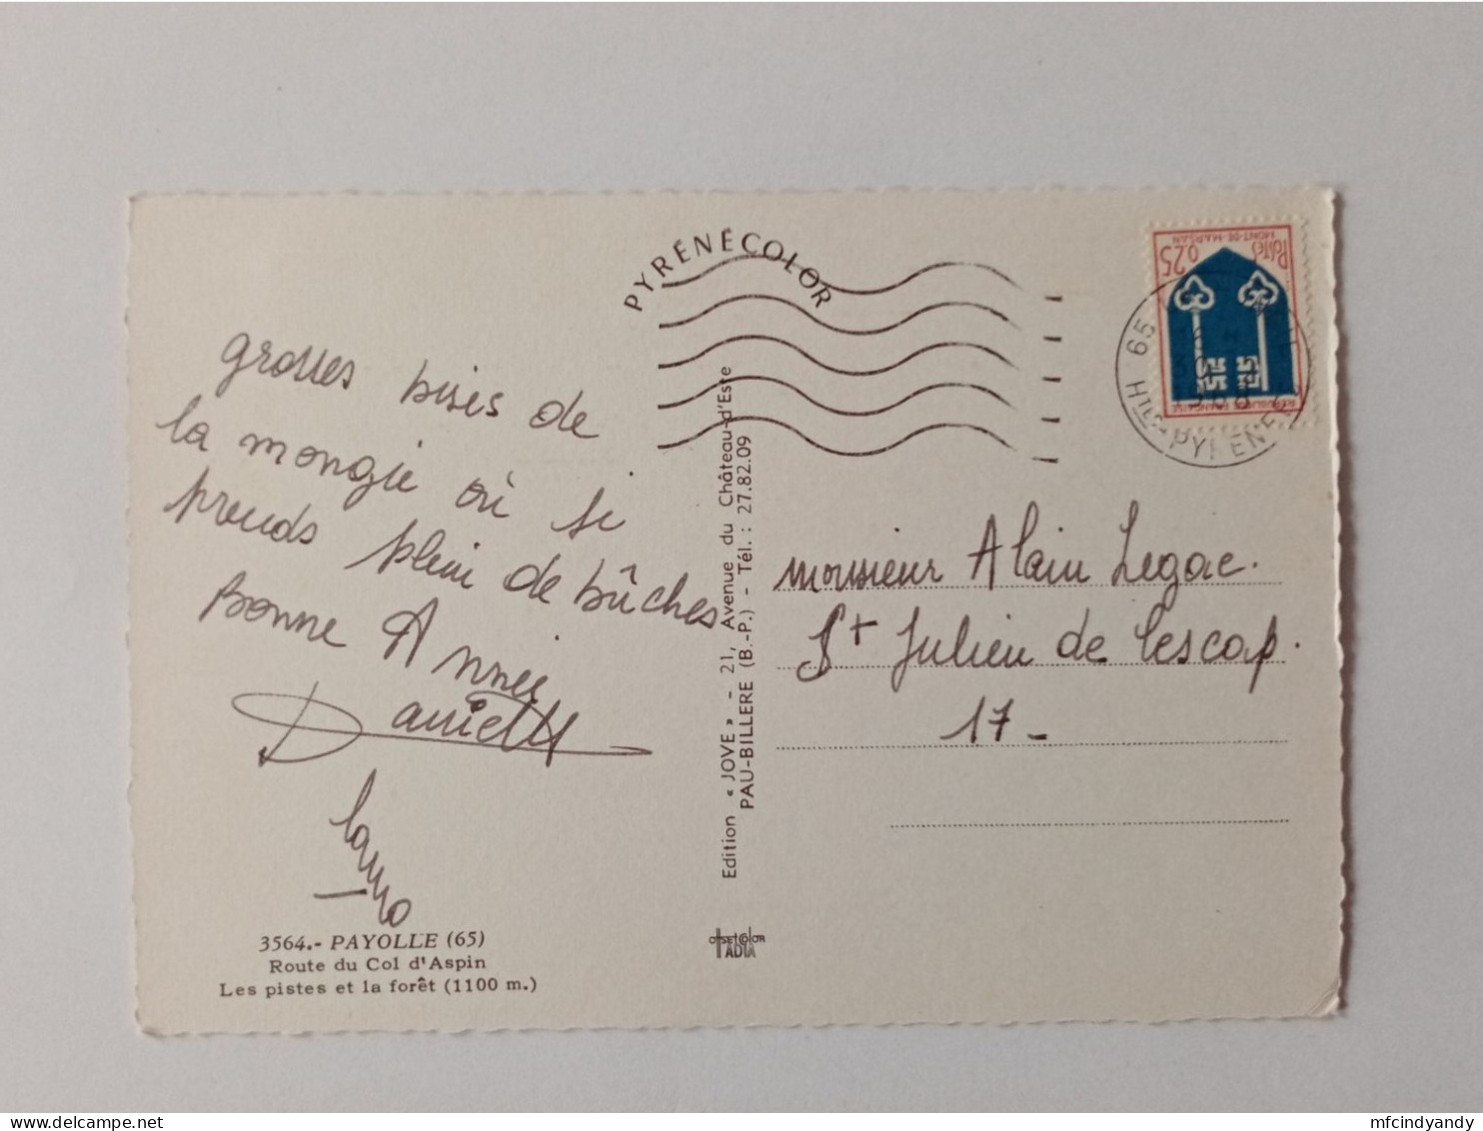 PYRÉNÉCOLOR
grosses bises de
la mongie où je
prends plein de bûches
Bonne Année
Danielle
3564.- PAYOLLE (65)
Route du Col d'Aspin
Les pistes et la forêt (1100 m.)
Edition « JOVE » - 21, Avenue du Château-d'Este
PAU-BILLERE (B.-P.) - Tél. : 27.82.09
OFFSETCOLOR
IADIA
POSTES 0,25
MONT-DE-MARSAN
REPUBLIQUE FRANÇAISE
65
HTES-PYRENEES
monsieur Alain Legac.
St Julien de l'escap.
17-
mfcindyandy